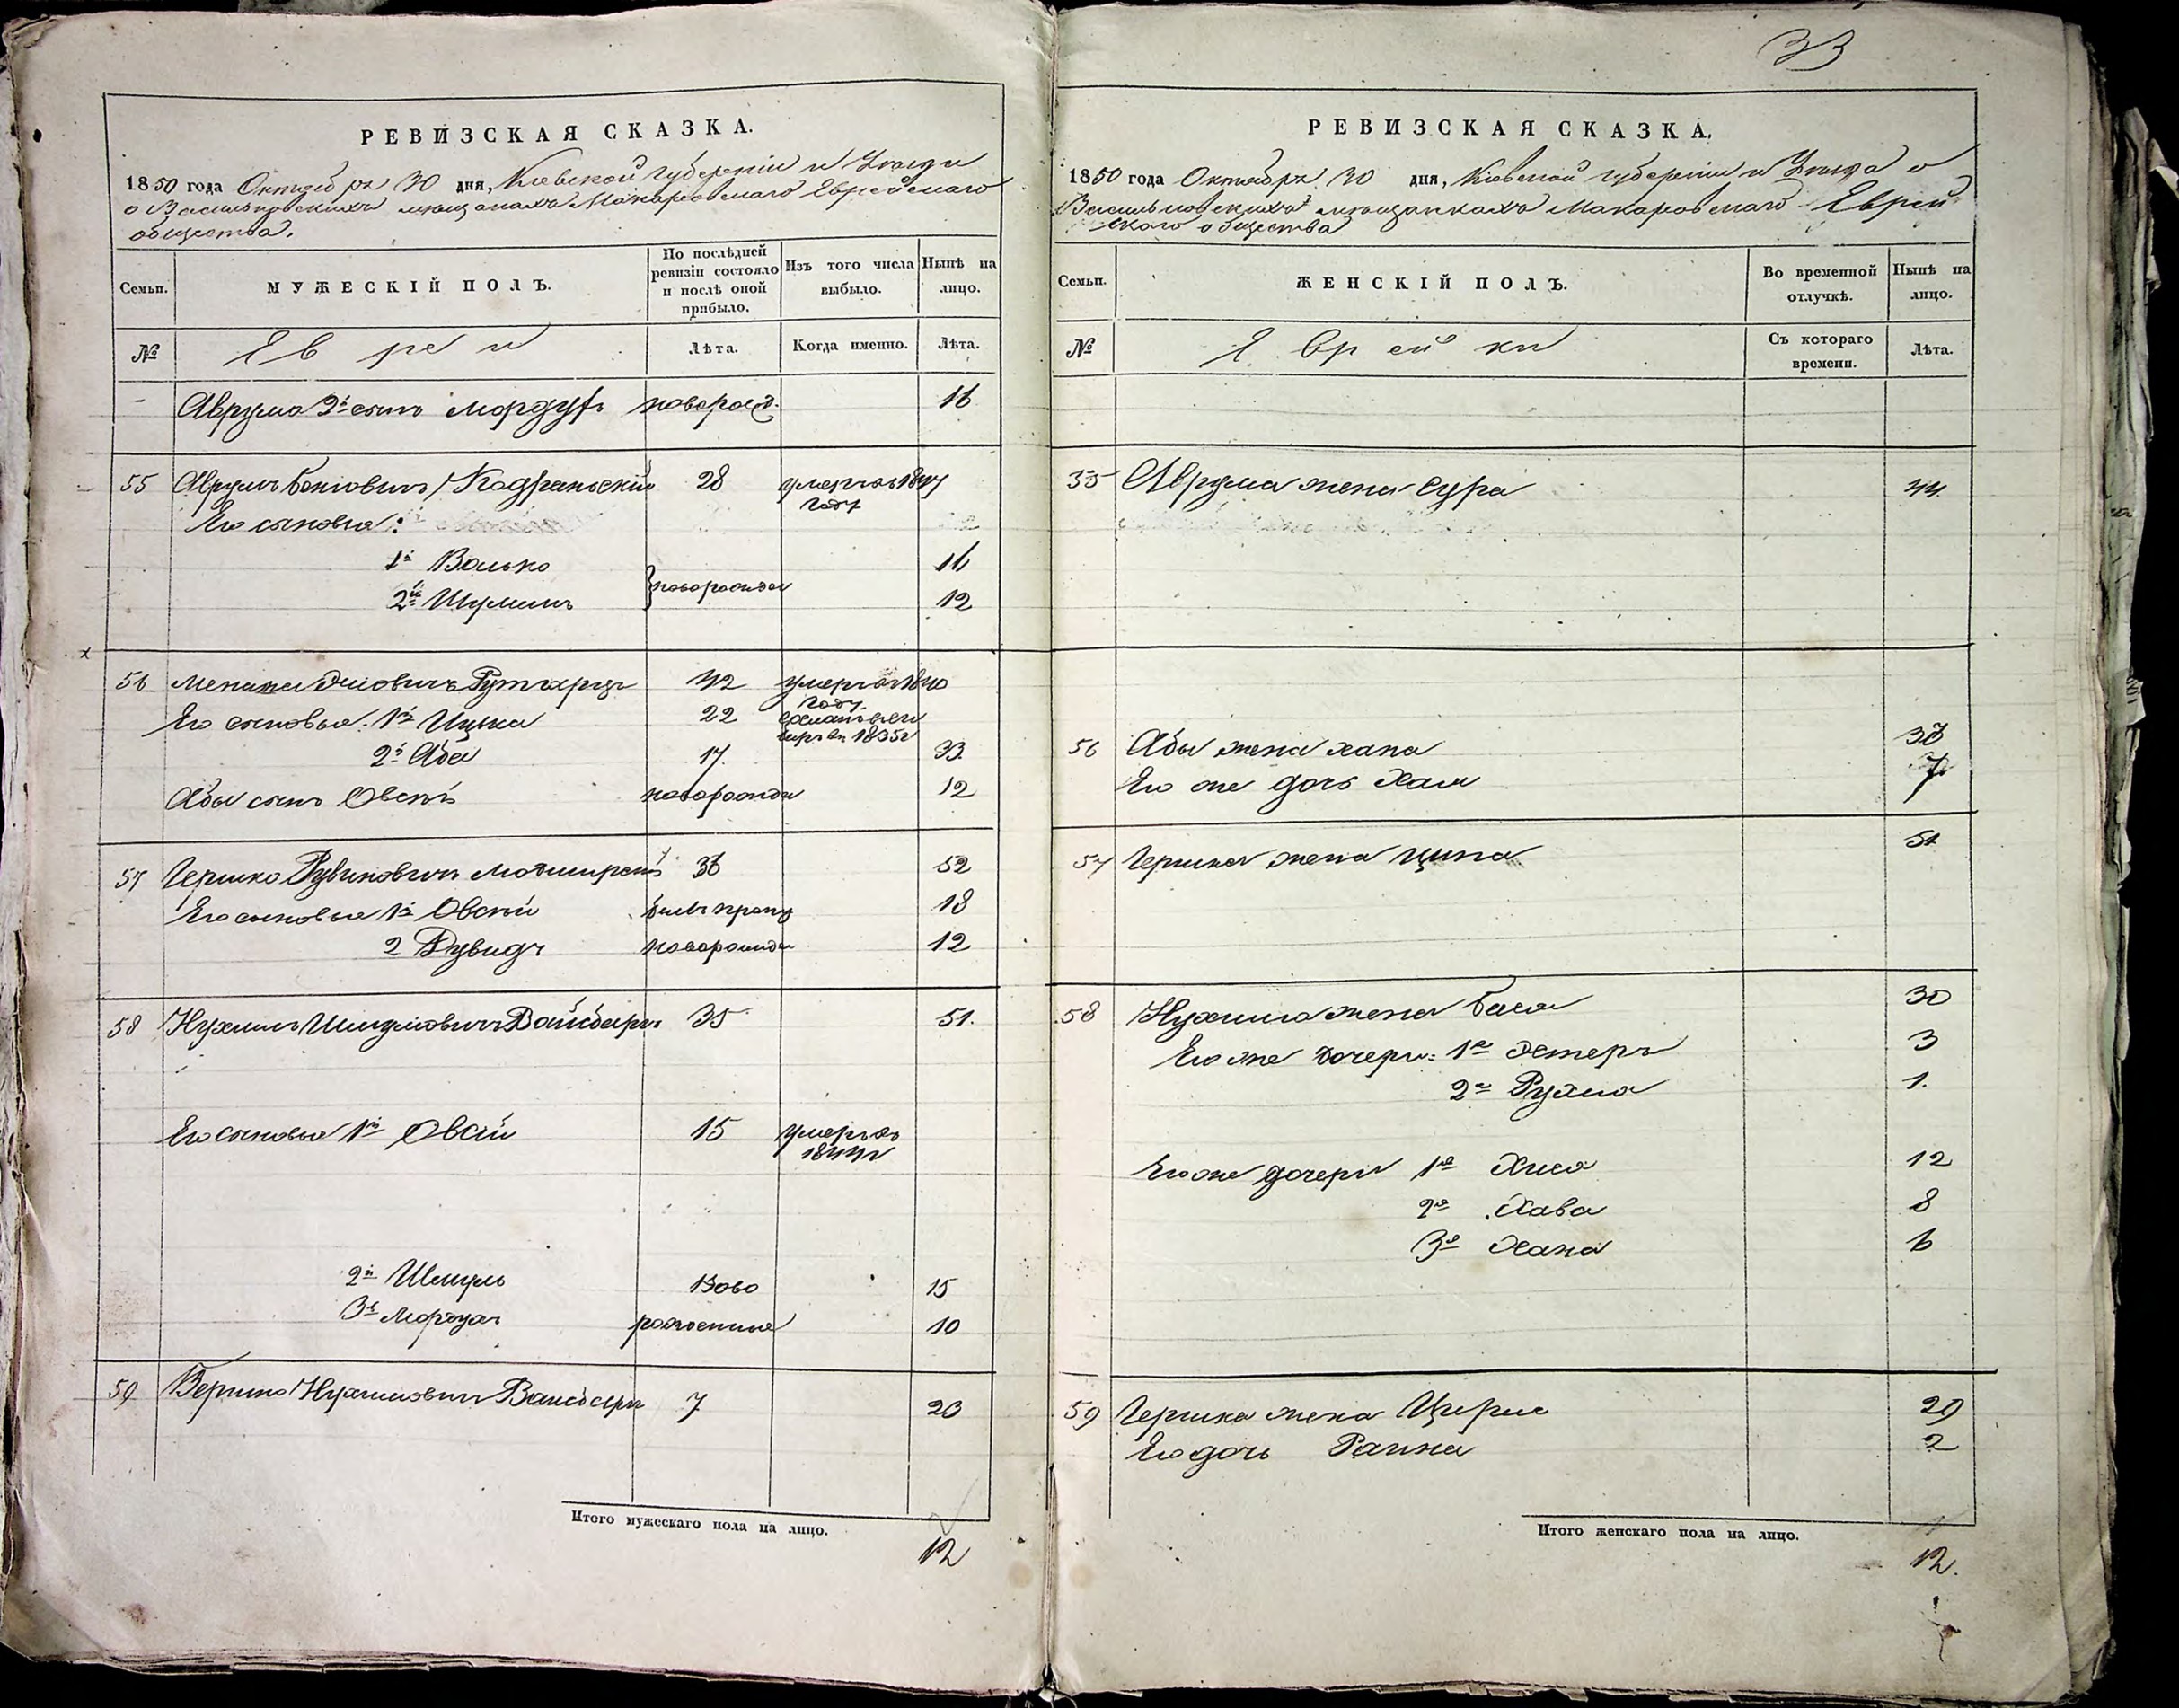 33
РЕВИЗСКАЯ СКАЗКА.
1850 года Октября 30 дня, Киевской губернии и Уезда
о Васильковскихъ мещанахъ Макаровскаго Еврейскаго
общества.
Семьи.
МУЖЕСКІЙ ПОЛЪ.
По послѣдней ревизіи состояло и послѣ оной прибыло.
Изъ того числа выбыло.
Нынѣ на лицо.
№
Евреи
Лѣта.
Когда именно.
Лѣта.
Аврума 2й сынъ Мордух новорожд. 16
55 Аврумъ Беніовичъ 28 умеръ въ 1847
году
Его сыновья:
1й Волько 16
новорожден
2й Шулимъ 12
56 42 умеръ въ 1840
году
Его сыновья: 1й Ицка 22
въ 1835г
2й Аба 17 33
Абы сынъ Овсѣй новорожден 12
57 Гершко Рувиновичъ 36 52
Его сыновья 1й Овсѣй былъ проп 18
2 Рувидъ новорожден 12
58 Нухимъ Шмулёвичъ Вайсберъ 35 51.
Его сыновья 1й Овсій 15 умеръ въ
1844г
2й Шмуль ново 15
3й Мордхъ рожденные 10
59 Гершко Нухимовичъ Вайсберъ 7 23
Итого мужескаго пола на лицо.
12
РЕВИЗСКАЯ СКАЗКА.
1850 года Октября 30 дня, Киевской губерніи и Уезда о
Васильковскихъ мещанкахъ Макаровскаго Еврей
скаго общества
Семьи.
ЖЕНСКІЙ ПОЛЪ.
Во временной отлучкѣ.
Нынѣ на лицо.
№
Еврейки
Съ котораго времени.
Лѣта.
55 Аврума жена Сура 44
56 Абы жена Хана 38
Его же дочь Хая 7
57 Гершка жена Ципа 51
58 Нухима жена Бася 30
Его же дочери: 1я Эстеръ 3
2я Рухля 1.
Его же дочери 1я Хися 12
2я Хава 8
3я Хана 6
59 Гершка жена Цирля 29
Его дочь 2
Итого женскаго пола на лицо.
12.